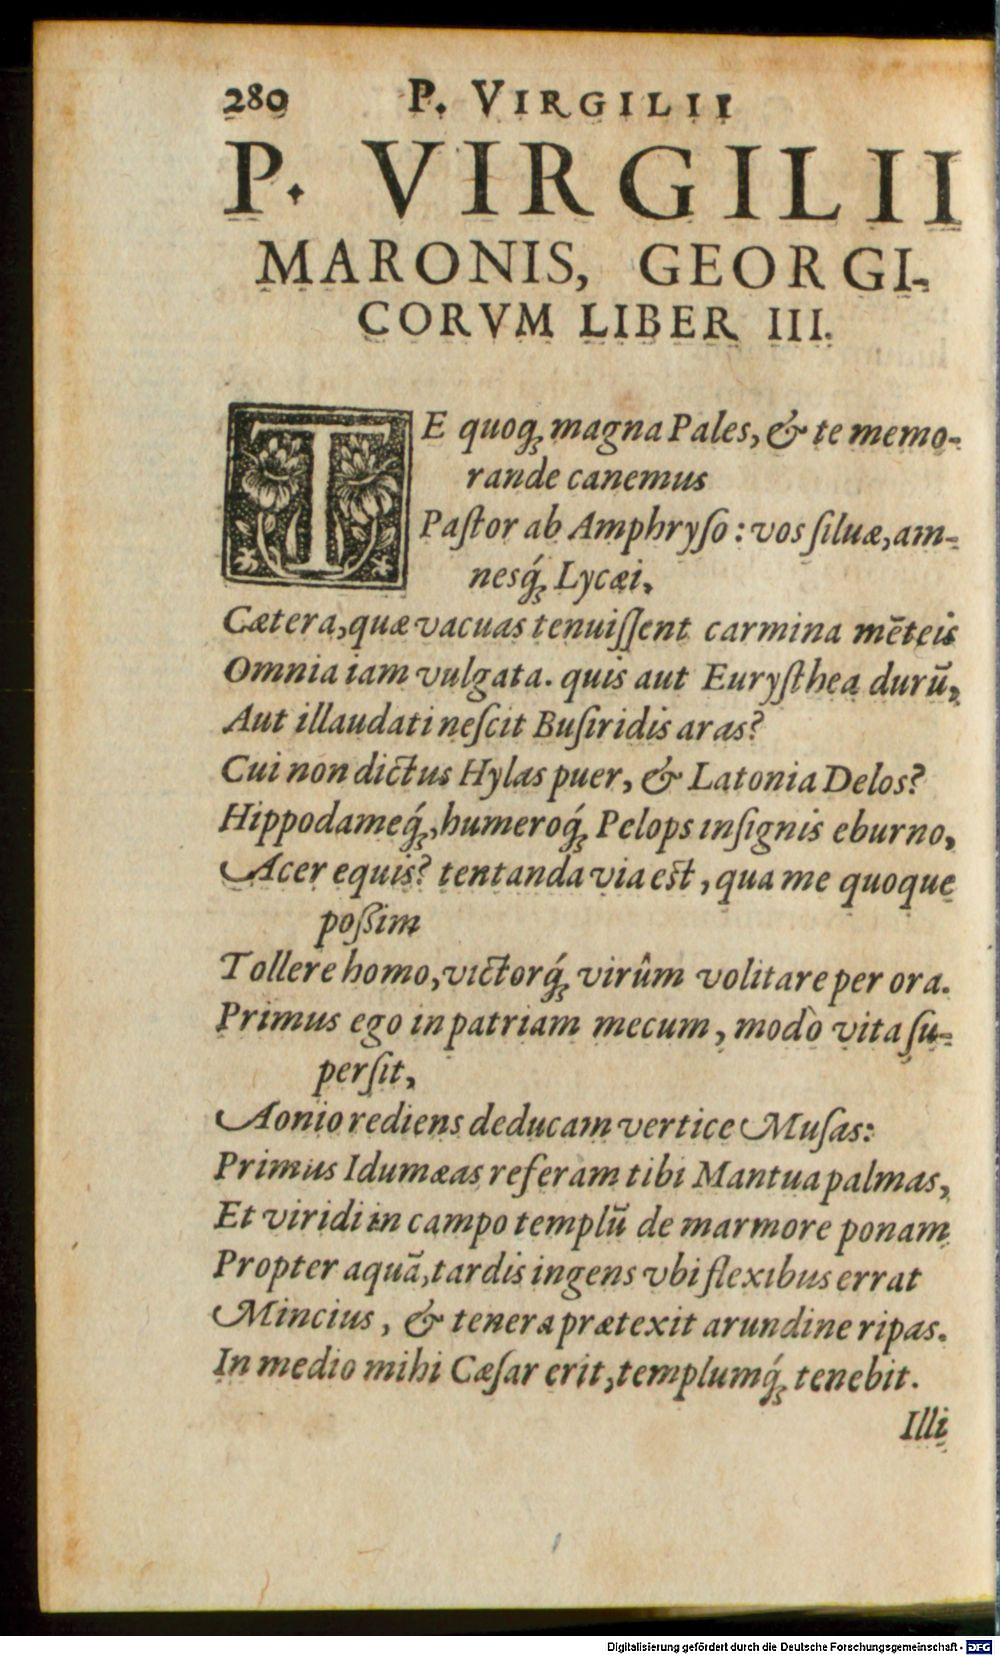 280 P. VIRGILII
P. VIRGILII
MARONIS, GEORGI-
CORVM LIBER III.
TE quoq; magna Pales, & te memo-
rande canemus
Paſtor ab Amphryſo: vos ſiluæ, am-
nesq́; Lycæi,
Cætera, quæ vacuas tenuiſſent carmina mẽteis
Omnia iam vulgata. quis aut Euryſthea durũ,
Aut illaudati neſcit Buſiridis aras?
Cui non dictus Hylas puer, & Latonia Delos?
Hippodameq́;, humeroq́; Pelops inſignis eburno,
Acer equis? tentanda via est, qua me quoque
poßim
Tollere homo, victorq́; virûm volitare per ora.
Primus ego in patriam mecum, modò vita ſu-
perſit,
Aonio rediens deducam vertice Muſas:
Primus Idumæas referam tibi Mantua palmas,
Et viridi in campo templũ de marmore ponam
Propter aquã, tardis ingens vbi flexibus errat
Mincius, & tenera prætexit arundine ripas.
In medio mihi Cæſar erit, templumq́; tenebit.
Illi
Digitalisierung gefördert durch die Deutsche Forschungsgemeinschaft - DFG